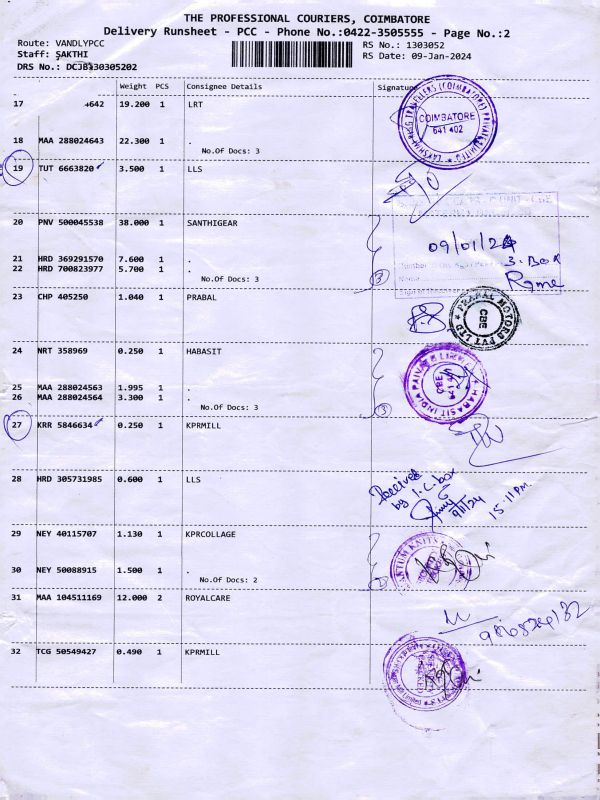 THE PROFESSIONAL COURIERS, COIMBATORE
Delivery Runsheet - PCC - Phone No.:0422-3505555 - Page No.:2
Route: VANDLYPCC
Staff: SAKTHI
DRS No.: DCJB130305202
RS No.: 1303052
RS Date: 09-Jan-2024
Weight PCS Consignee Details Signature
17 642 19.200 1 LRT
COIMBATORE
641 402
18 MAA 288024643 22.300 1 .
No.Of Docs: 3
19 TUT 6663820 3.500 1 LLS
20 PNV 500045538 38.000 1 SANTHIGEAR
09/01/24
3. Box
21 HRD 369291570 7.600 1 .
22 HRD 700823977 5.700 1 .
No.Of Docs: 3
3
23 CHP 405250 1.040 1 PRABAL
PRABAL MOTORS PVT LTD
CBE
24 NRT 358969 0.250 1 HABASIT
HABASIT INDIA PRIVATE LIMITED
CBE
25 MAA 288024563 1.995 1 .
26 MAA 288024564 3.300 1 .
No.Of Docs: 3
3
27 KRR 5846634 0.250 1 KPRMILL
28 HRD 305731985 0.600 1 LLS
Received
by 1. C. box
9/1/24
15.11 PM
29 NEY 40115707 1.130 1 KPRCOLLAGE
30 NEY 50088915 1.500 1 .
No.Of Docs: 2
31 MAA 104511169 12.000 2 ROYALCARE
32 TCG 50549427 0.490 1 KPRMILL